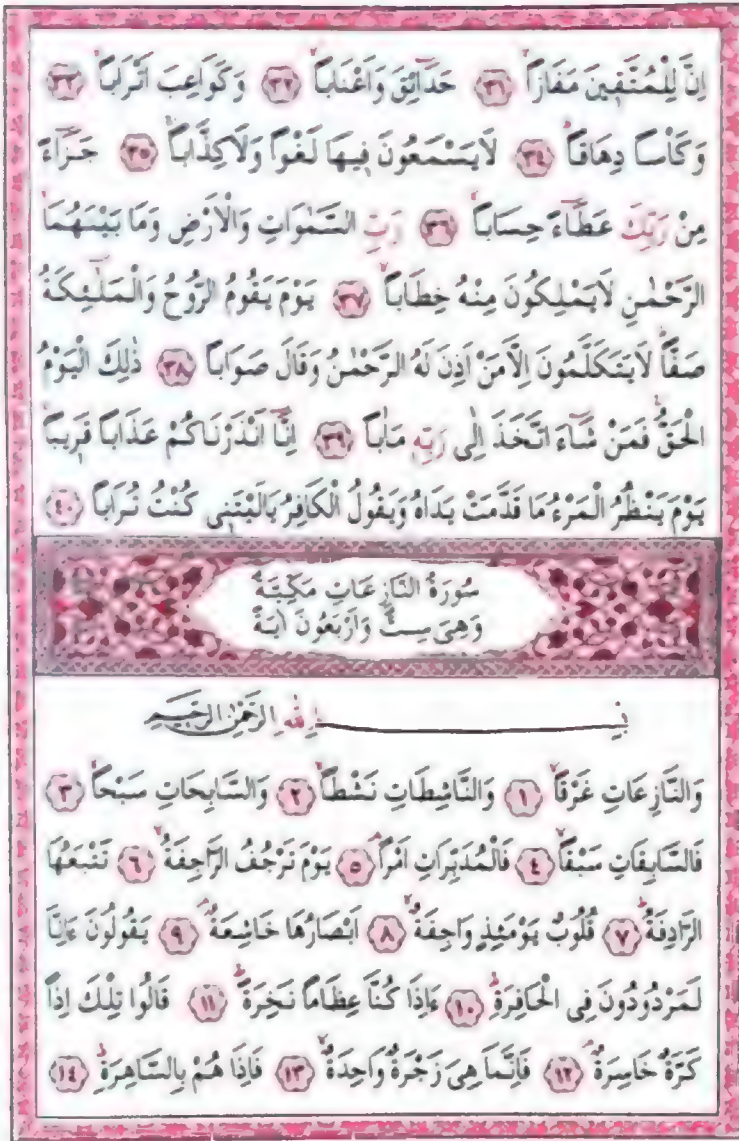 اِنَّ لِلْمُتَّق۪ينَ مَفَازاًۙ ﴿٣١﴾ حَدَٓائِقَ وَاَعْنَاباًۙ ﴿٣٢﴾ وَكَوَاعِبَ اَتْرَاباًۙ ﴿٣٣﴾
وَكَأْساً دِهَاقاًۜ ﴿٣٤﴾ لَا يَسْمَعُونَ ف۪يهَا لَغْواً وَلَا كِذَّاباًۚ ﴿٣٥﴾ جَزَٓاءً
مِنْ رَبِّكَ عَطَٓاءً حِسَاباًۙ ﴿٣٦﴾ رَبِّ السَّمٰوَاتِ وَالْاَرْضِ وَمَا بَيْنَهُمَا
الرَّحْمٰنِ لَا يَمْلِكُونَ مِنْهُ خِطَاباًۚ ﴿٣٧﴾ يَوْمَ يَقُومُ الرُّوحُ وَالْمَلٰٓئِكَةُ
صَفاًّۜ لَا يَتَكَلَّمُونَ اِلَّا مَنْ اَذِنَ لَهُ الرَّحْمٰنُ وَقَالَ صَوَاباً ﴿٣٨﴾ ذٰلِكَ الْيَوْمُ
الْحَقُّۚ فَمَنْ شَٓاءَ اتَّخَذَ اِلٰى رَبِّه۪ مَاٰباً ﴿٣٩﴾ اِنَّٓا اَنْذَرْنَاكُمْ عَذَاباً قَر۪يباًۚ
يَوْمَ يَنْظُرُ الْمَرْءُ مَا قَدَّمَتْ يَدَاهُ وَيَقُولُ الْكَافِرُ يَالَيْتَن۪ي كُنْتُ تُرَاباً ﴿٤٠﴾
سُورَةُ النَّازِعَاتِ مَكِّيَّةٌ
وَهِيَ سِتٌّ وَاَرْبَعُونَ اٰيَةً
بِسْمِ اللّٰهِ الرَّحْمٰنِ الرَّح۪يمِ
وَالنَّازِعَاتِ غَرْقاًۙ ﴿١﴾ وَالنَّاشِطَاتِ نَشْطاًۙ ﴿٢﴾ وَالسَّابِحَاتِ سَبْحاًۙ ﴿٣﴾
فَالسَّابِقَاتِ سَبْقاًۙ ﴿٤﴾ فَالْمُدَبِّرَاتِ اَمْراًۢ ﴿٥﴾ يَوْمَ تَرْجُفُ الرَّاجِفَةُۙ ﴿٦﴾ تَتْبَعُهَا
الرَّادِفَةُۜ ﴿٧﴾ قُلُوبٌ يَوْمَئِذٍ وَاجِفَةٌۙ ﴿٨﴾ اَبْصَارُهَا خَاشِعَةٌۢ ﴿٩﴾ يَقُولُونَ ءَاِنَّا
لَمَرْدُودُونَ فِي الْحَافِرَةِۜ ﴿١٠﴾ ءَاِذَا كُنَّا عِظَاماً نَخِرَةًۜ ﴿١١﴾ قَالُوا تِلْكَ اِذاً
كَرَّةٌ خَاسِرَةٌۢ ﴿١٢﴾ فَاِنَّمَا هِيَ زَجْرَةٌ وَاحِدَةٌۙ ﴿١٣﴾ فَاِذَا هُمْ بِالسَّاهِرَةِۜ ﴿١٤﴾